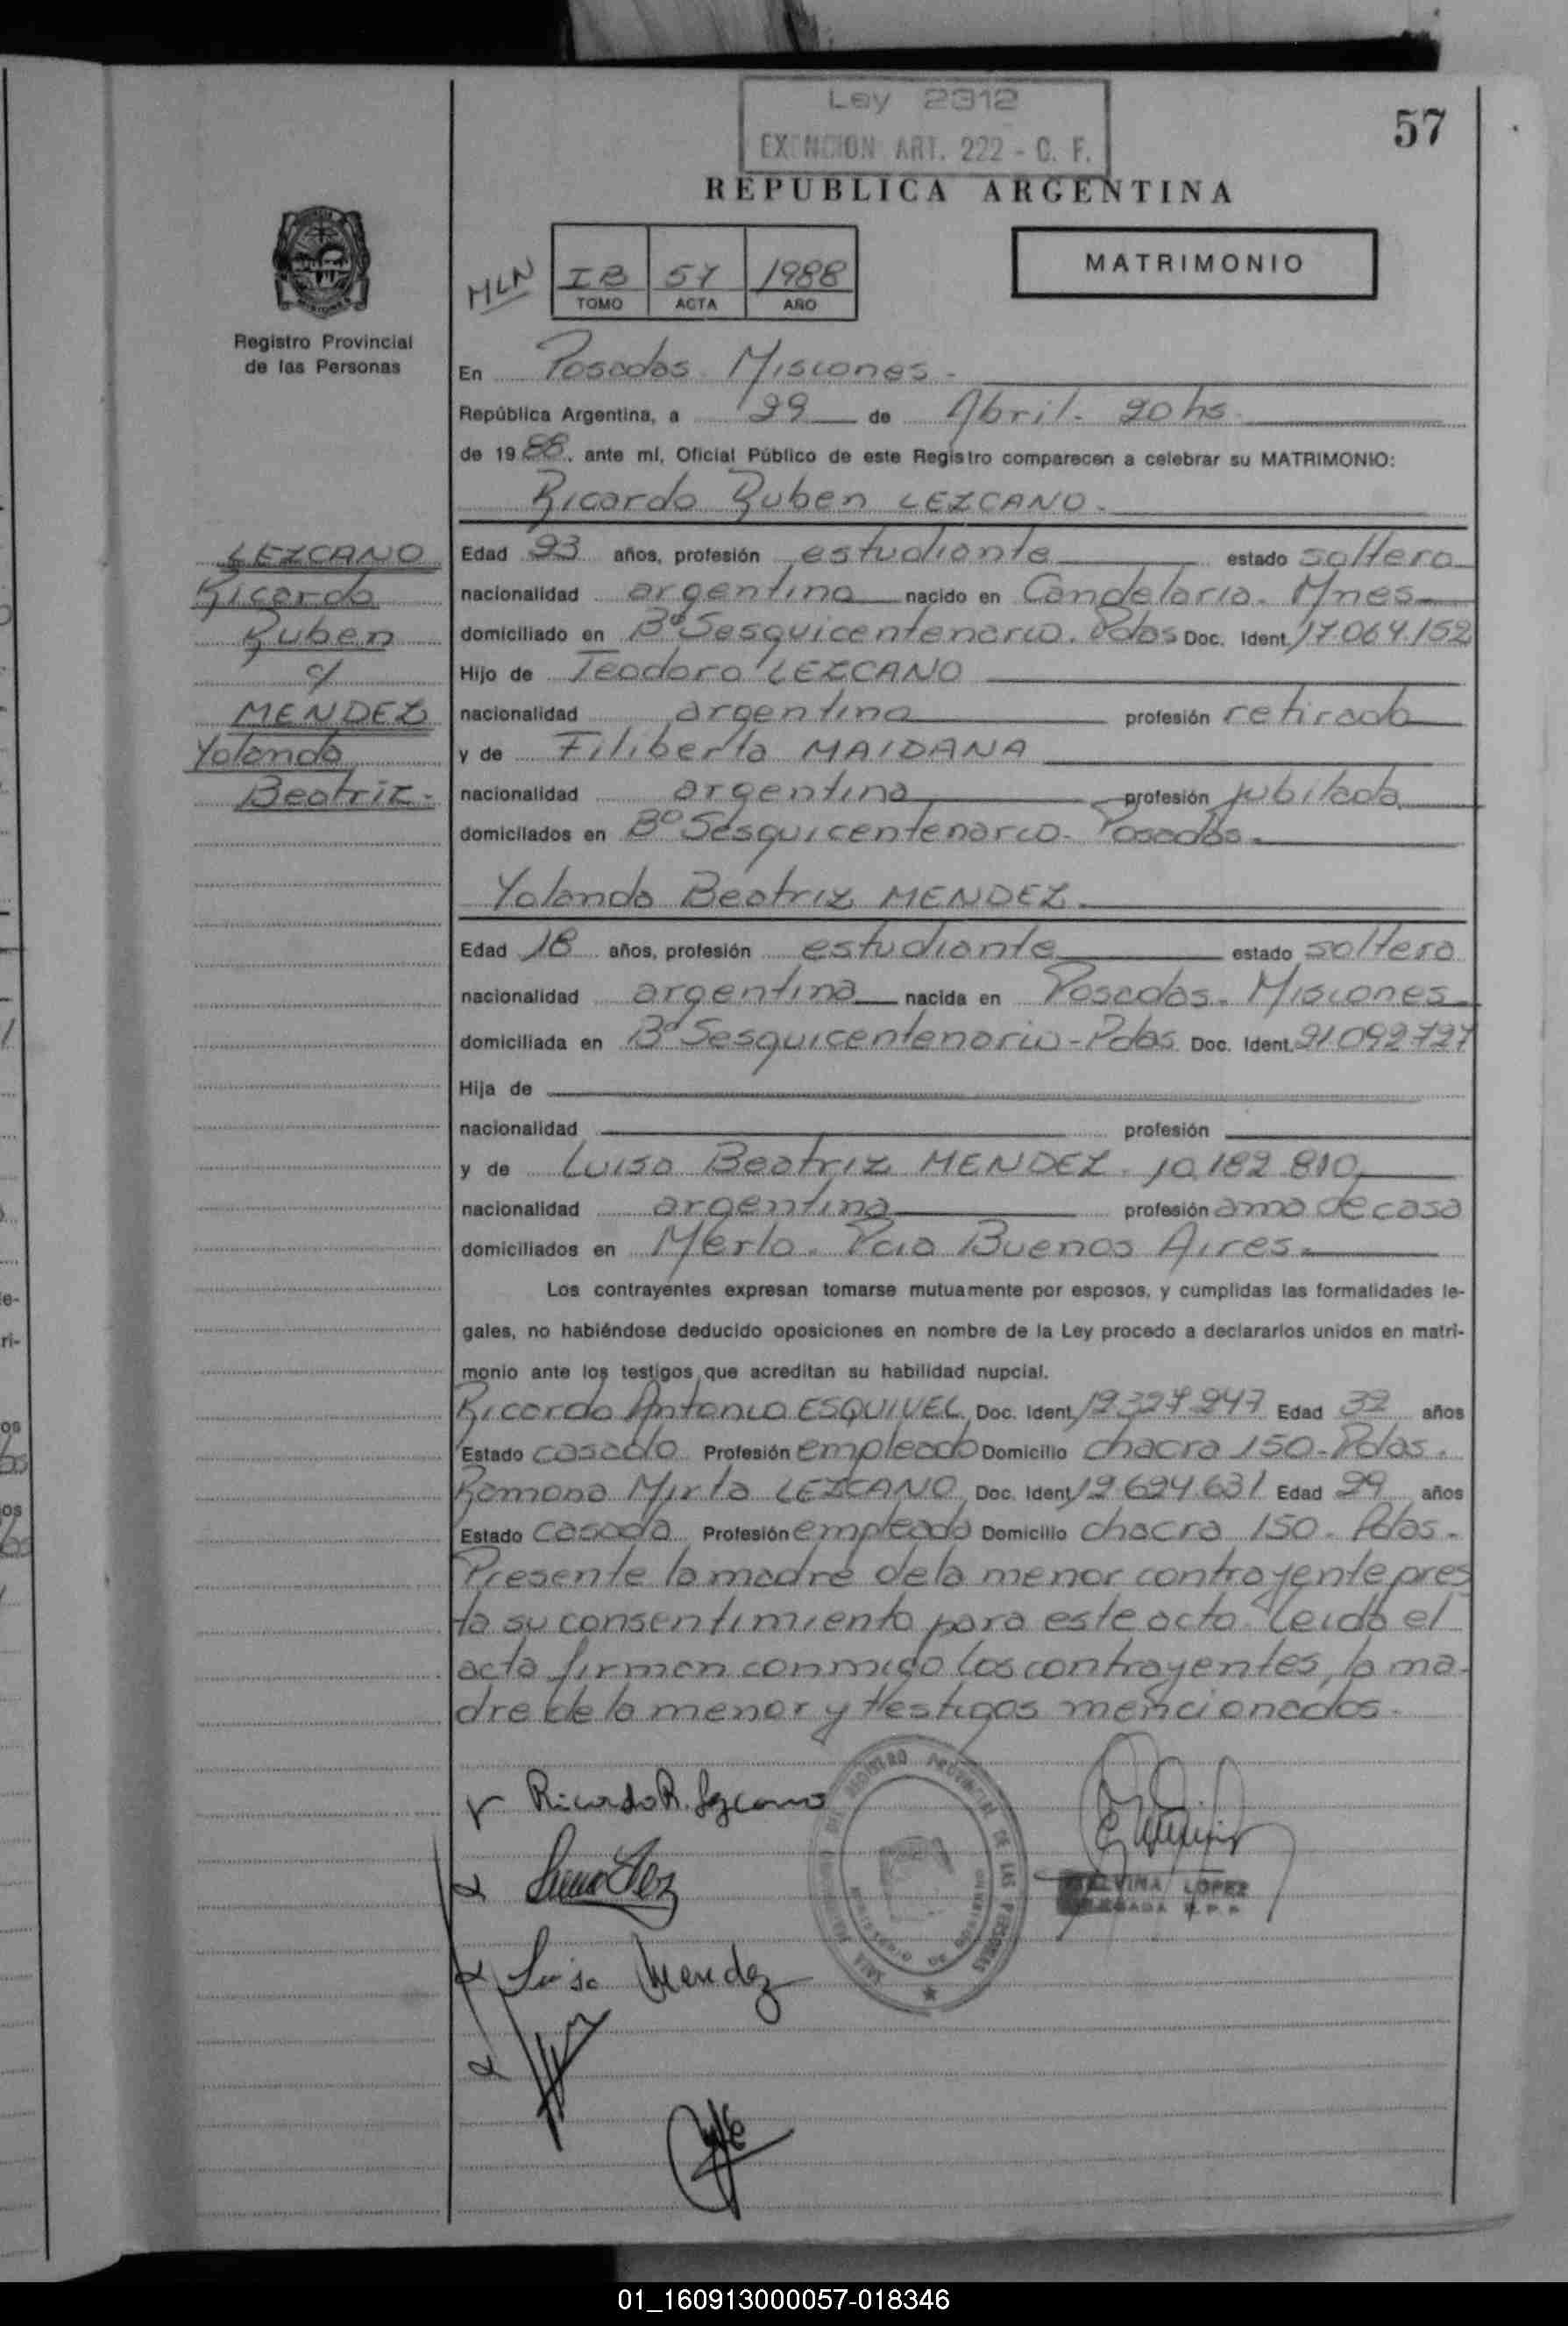 Ley 2312
EXENCION ART. 222 - C. F.
57
REPUBLICA ARGENTINA
MATRIMONIO
MLN
IB 57 1988
TOMO ACTA AÑO
Registro Provincial
de las Personas
En Posadas. Misiones.
República Argentina, a 29 de Abril. 20 hs.
de 1988. ante mí, Oficial Público de este Registro comparecen a celebrar su MATRIMONIO:
Ricardo Ruben LEZCANO.
LEZCANO
Ricardo
Ruben
c/
MENDEZ
Yolanda
Beatriz.
Edad 23 años, profesión estudiante estado soltero
nacionalidad argentina nacido en Candelaria. Mnes
domiciliado en Bº Sesquicentenario. Pdas Doc. Ident. 17.064.152
Hijo de Teodoro LEZCANO
nacionalidad argentina profesión retirado
y de Filiberta MAIDANA
nacionalidad argentina profesión jubilada
domiciliados en Bº Sesquicentenario. Posadas.
Yolanda Beatriz MENDEZ.
Edad 18 años, profesión estudiante estado soltera
nacionalidad argentina nacida en Posadas. Misiones
domiciliada en Bº Sesquicentenario - Pdas Doc. Ident. 21.092.727
Hija de
nacionalidad profesión
y de Luisa Beatriz MENDEZ. 10.182.810
nacionalidad argentina profesión ama de casa
domiciliados en Merlo. Pcia Buenos Aires.
Los contrayentes expresan tomarse mutuamente por esposos, y cumplidas las formalidades le-
gales, no habiéndose deducido oposiciones en nombre de la Ley procedo a declararlos unidos en matri-
monio ante los testigos que acreditan su habilidad nupcial.
Ricardo Antonio ESQUIVEL Doc. Ident. 12.327.247 Edad 32 años
Estado casado Profesión empleado Domicilio chacra 150 - Pdas.
Ramona Mirta LEZCANO Doc. Ident. 12.624.631 Edad 29 años
Estado casada Profesión empleada Domicilio chacra 150. Pdas.
Presente la madre de la menor contrayente pres
ta su consentimiento para este acto. Leida el
acta firman conmigo los contrayentes, la ma-
dre de la menor y testigos mencionados.
Ricardo R. Lezcano
Luisa Mendez
REGISTRO PROVINCIAL DE LAS PERSONAS
ELVIRA LOPEZ
01_160913000057-018346